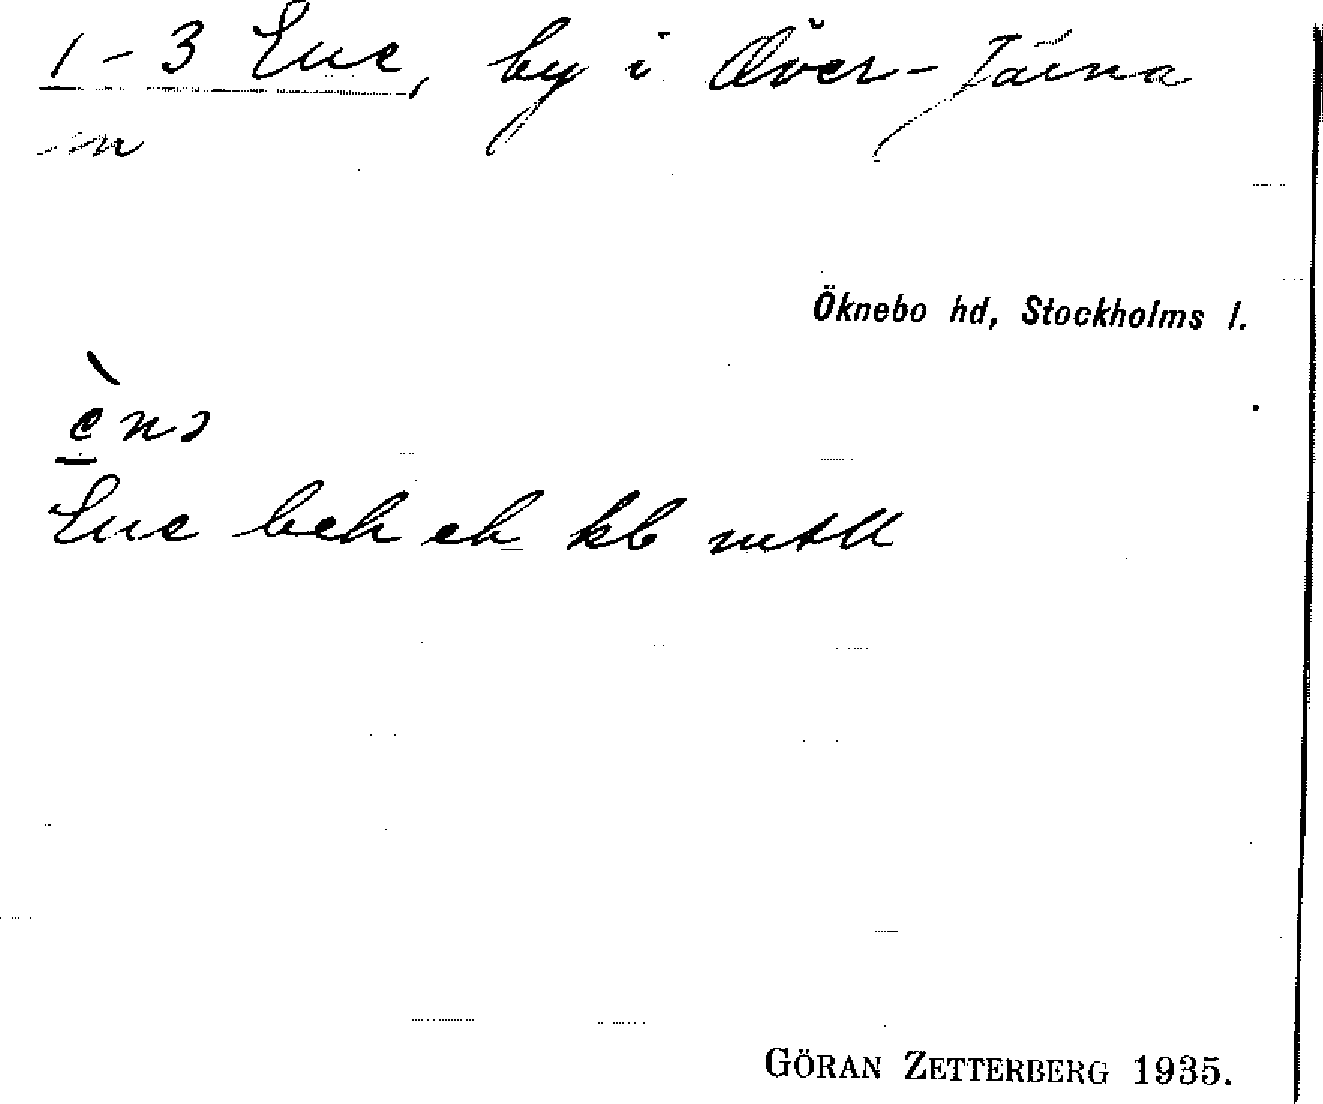 1-3 Ene, by i Över-Järna
Öknebo hd, Stockholms l.
Ene beh eh kb mtll
GÖRAN ZETTERBERG 1935.